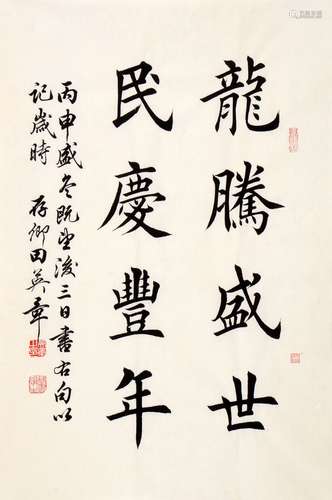 龍騰盛世
民慶豐年
丙申盛冬既望後三日書右句以
記歲時 存卿田英章